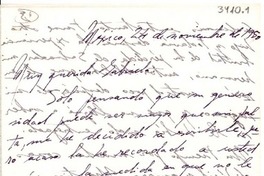 3410.1
México, 24 de noviembre de 1950
Muy querida Gabriela:
Solo pensando que su genero
sidad puede ser mayor que mi fal
ta, me he decidido a escribirle,
la he recordado a usted
en que no le